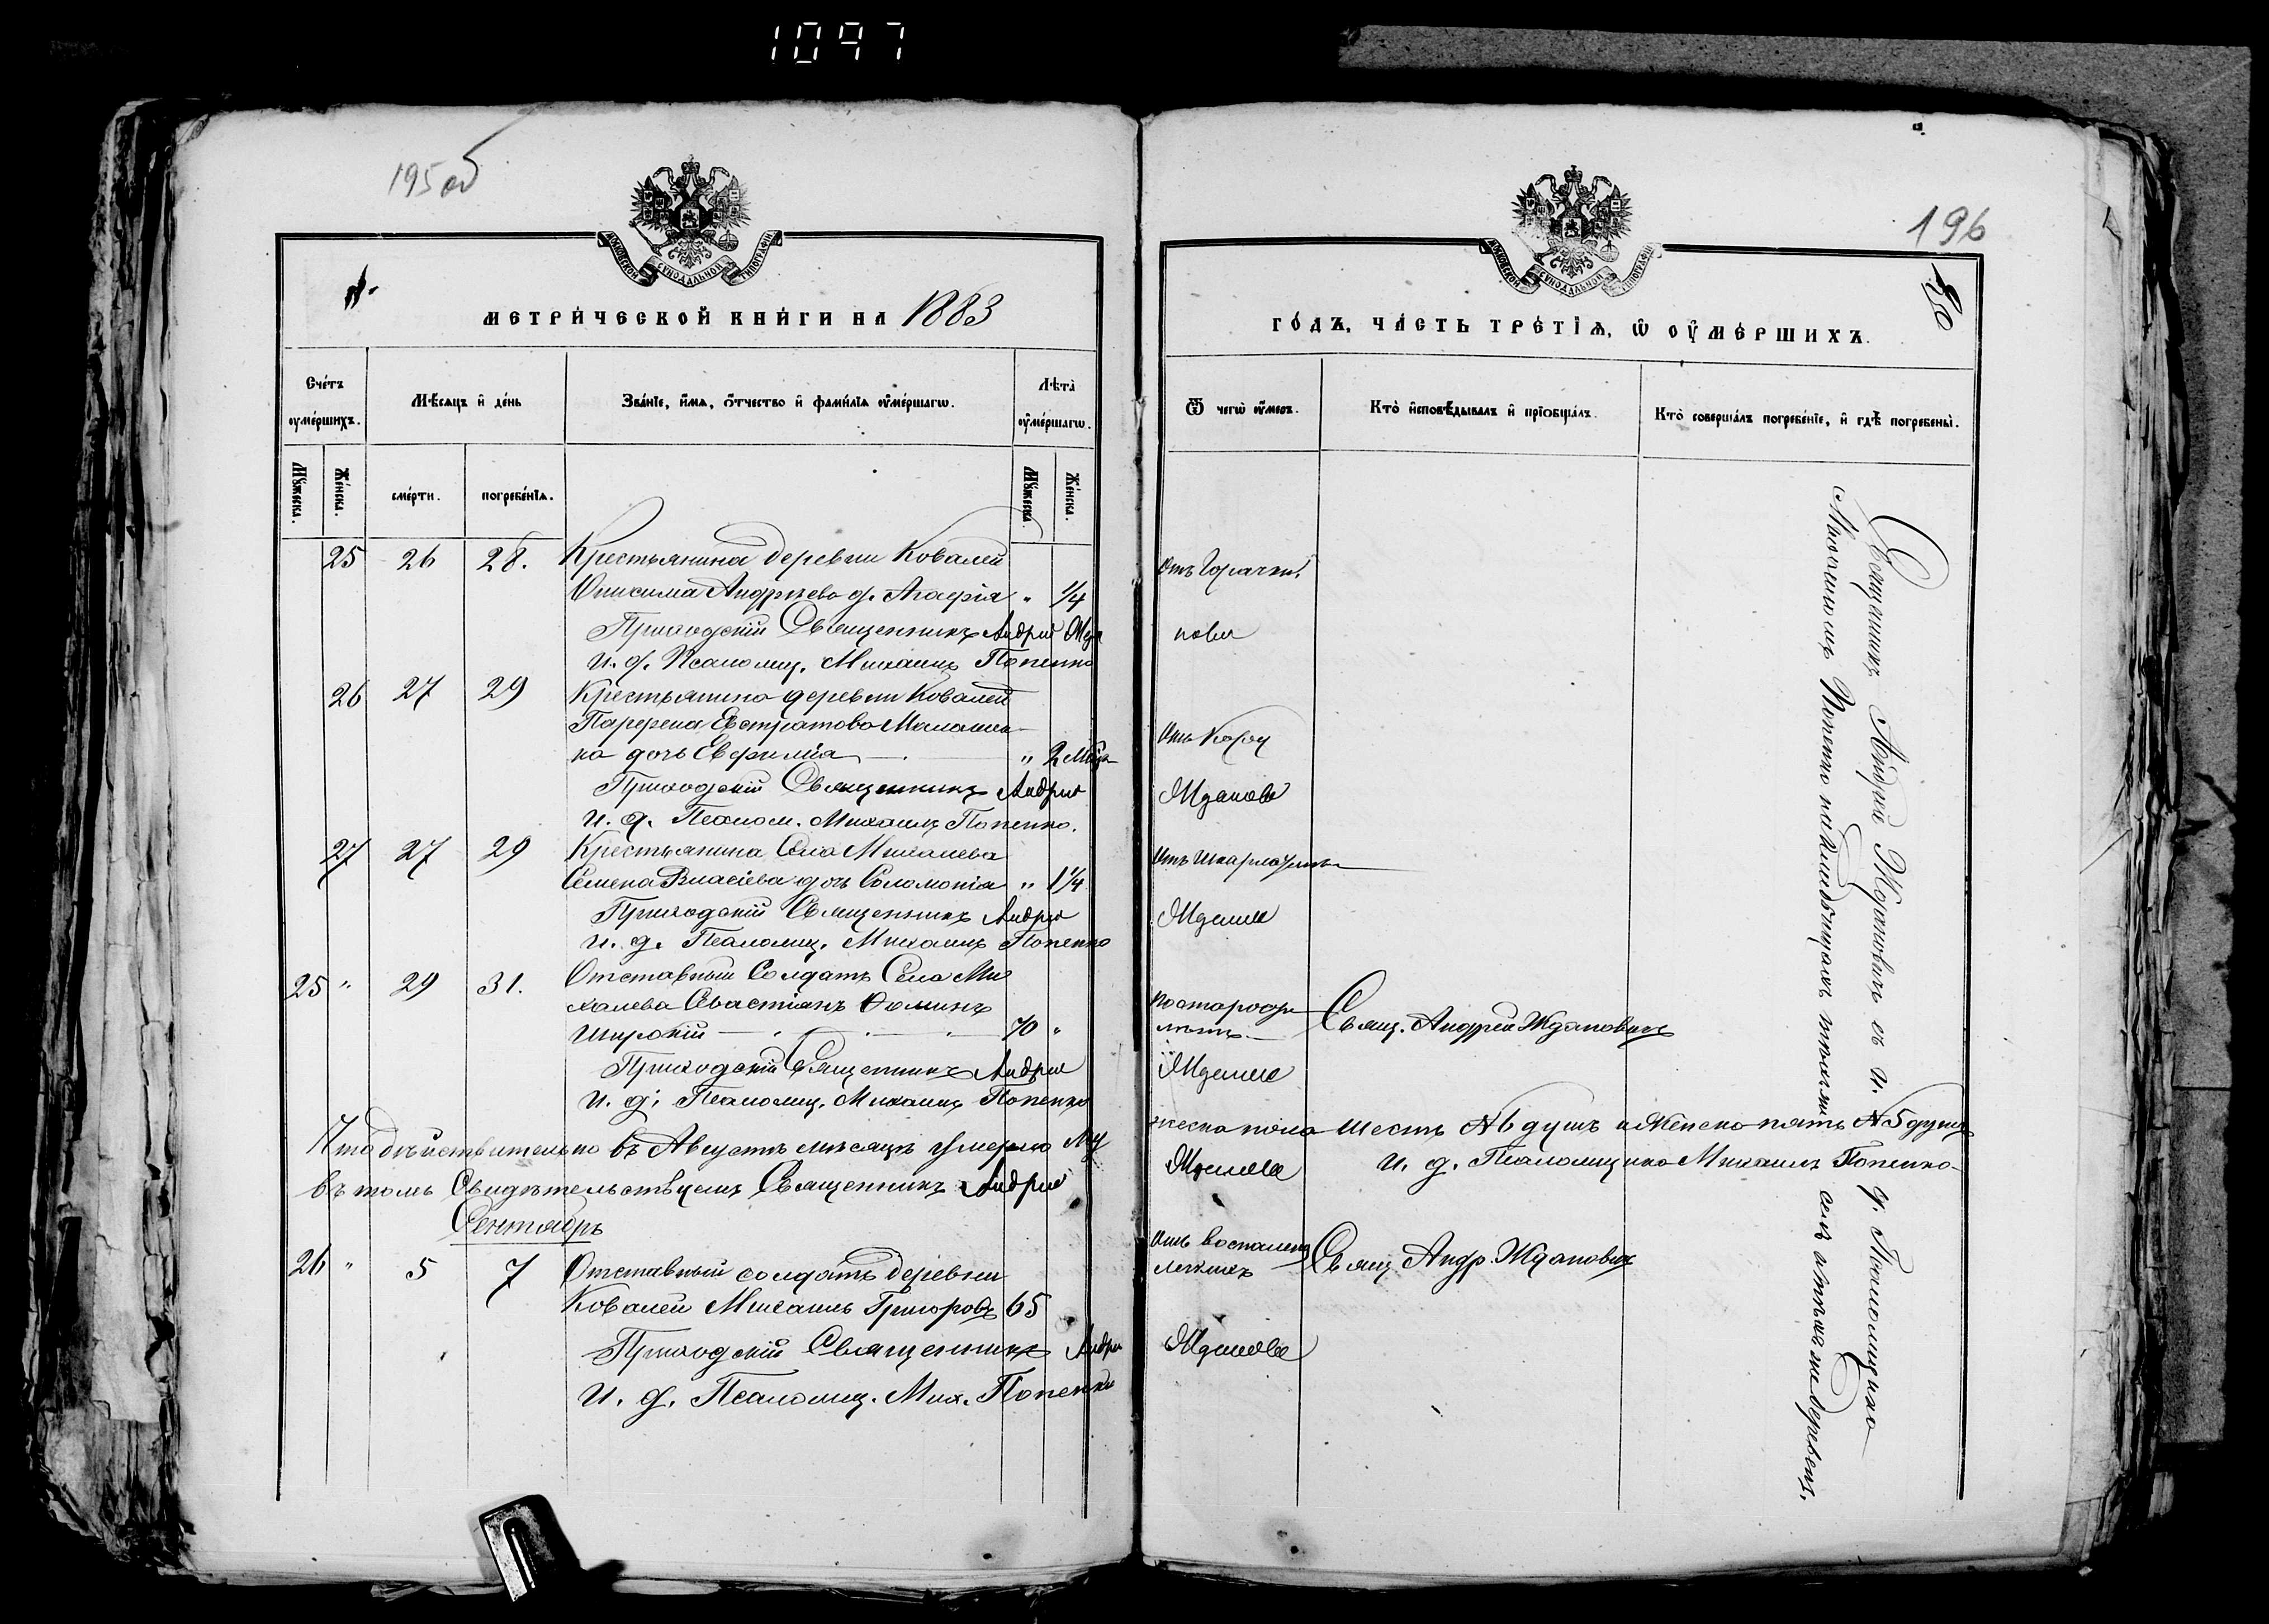 1097
195 об
МОСКОВСКОЙ СУНОДАЛЬНОЙ ТИПОГРАФІИ
МЕТРИЧЕСКОЙ КНИГИ НА 1883
Счетъ умершихъ.
Мѣсяцъ и день
Званіе, имя, отчество и фамилія умершагω.
Лѣта умершагω.
Мужеска.
Женска.
смерти.
погребенія.
Мужеска.
Женска.
25 26 28. Крестьянина деревни Ковалей
Онисима Андреева д. Агафія " 1/4
Приходскій Священникъ Андрей
И. д. Псаломщ. Михаилъ Попенко
26 27 29 Крестьянина деревни Ковалей
Парфена Евстратова
дочь Евфимія " 2 Мѣся
Приходскій Священникъ Андрей
И. д. Псалом. Михаилъ Попенко.
27 27 29 Крестьянина Села Михалева
Семена Власіева дочь Соломонія " 1 1/4
Приходскій Священникъ Андрей
И. д. Псаломщ. Михаилъ Попенко
25 " 29 31. Отставный Солдатъ Села Ми
халева Севастіанъ Фоминъ
Широкій 70 "
Приходскій Священникъ Андрей
И. д. Псаломщ. Михаилъ Попенко
Что дѣйствительно въ Августѣ мѣсяцѣ умерло Му
въ томъ Свидѣтельствуемъ Священникъ Андрей
Сентябрь
26 " 5 7 Отставный солдатъ деревни
Ковалей Михаилъ Григоровъ 65
Приходскій Священникъ Андрей
И. д. Псаломщ. Мих. Попенко
196
МОСКОВСКОЙ СУНОДАЛЬНОЙ ТИПОГРАФІИ
ГОДЪ, ЧАСТЬ ТРЕТІЯ, Ѡ УМЕРШИХЪ.
Ѿ чегω умеръ.
Кто исповѣдывалъ и пріобщалъ.
Кто совершалъ погребеніе, и гдѣ погребены.
Отъ Горячки
Отъ Кору
Жданове
Отъ шкарлатины
по старости
лѣтъ Свящ. Андрей Ждановичъ
жеска пола шесть № 6 душъ и Женска пять № 5 душъ
И. д. Псаломщика Михаилъ Попенко
Отъ воспаленія
легкихъ Свящ Андр. Ждановичъ
Священникъ Андрей Ждановичъ съ и. д. Псаломщика
Михаиломъ Попенко на кладбищахъ